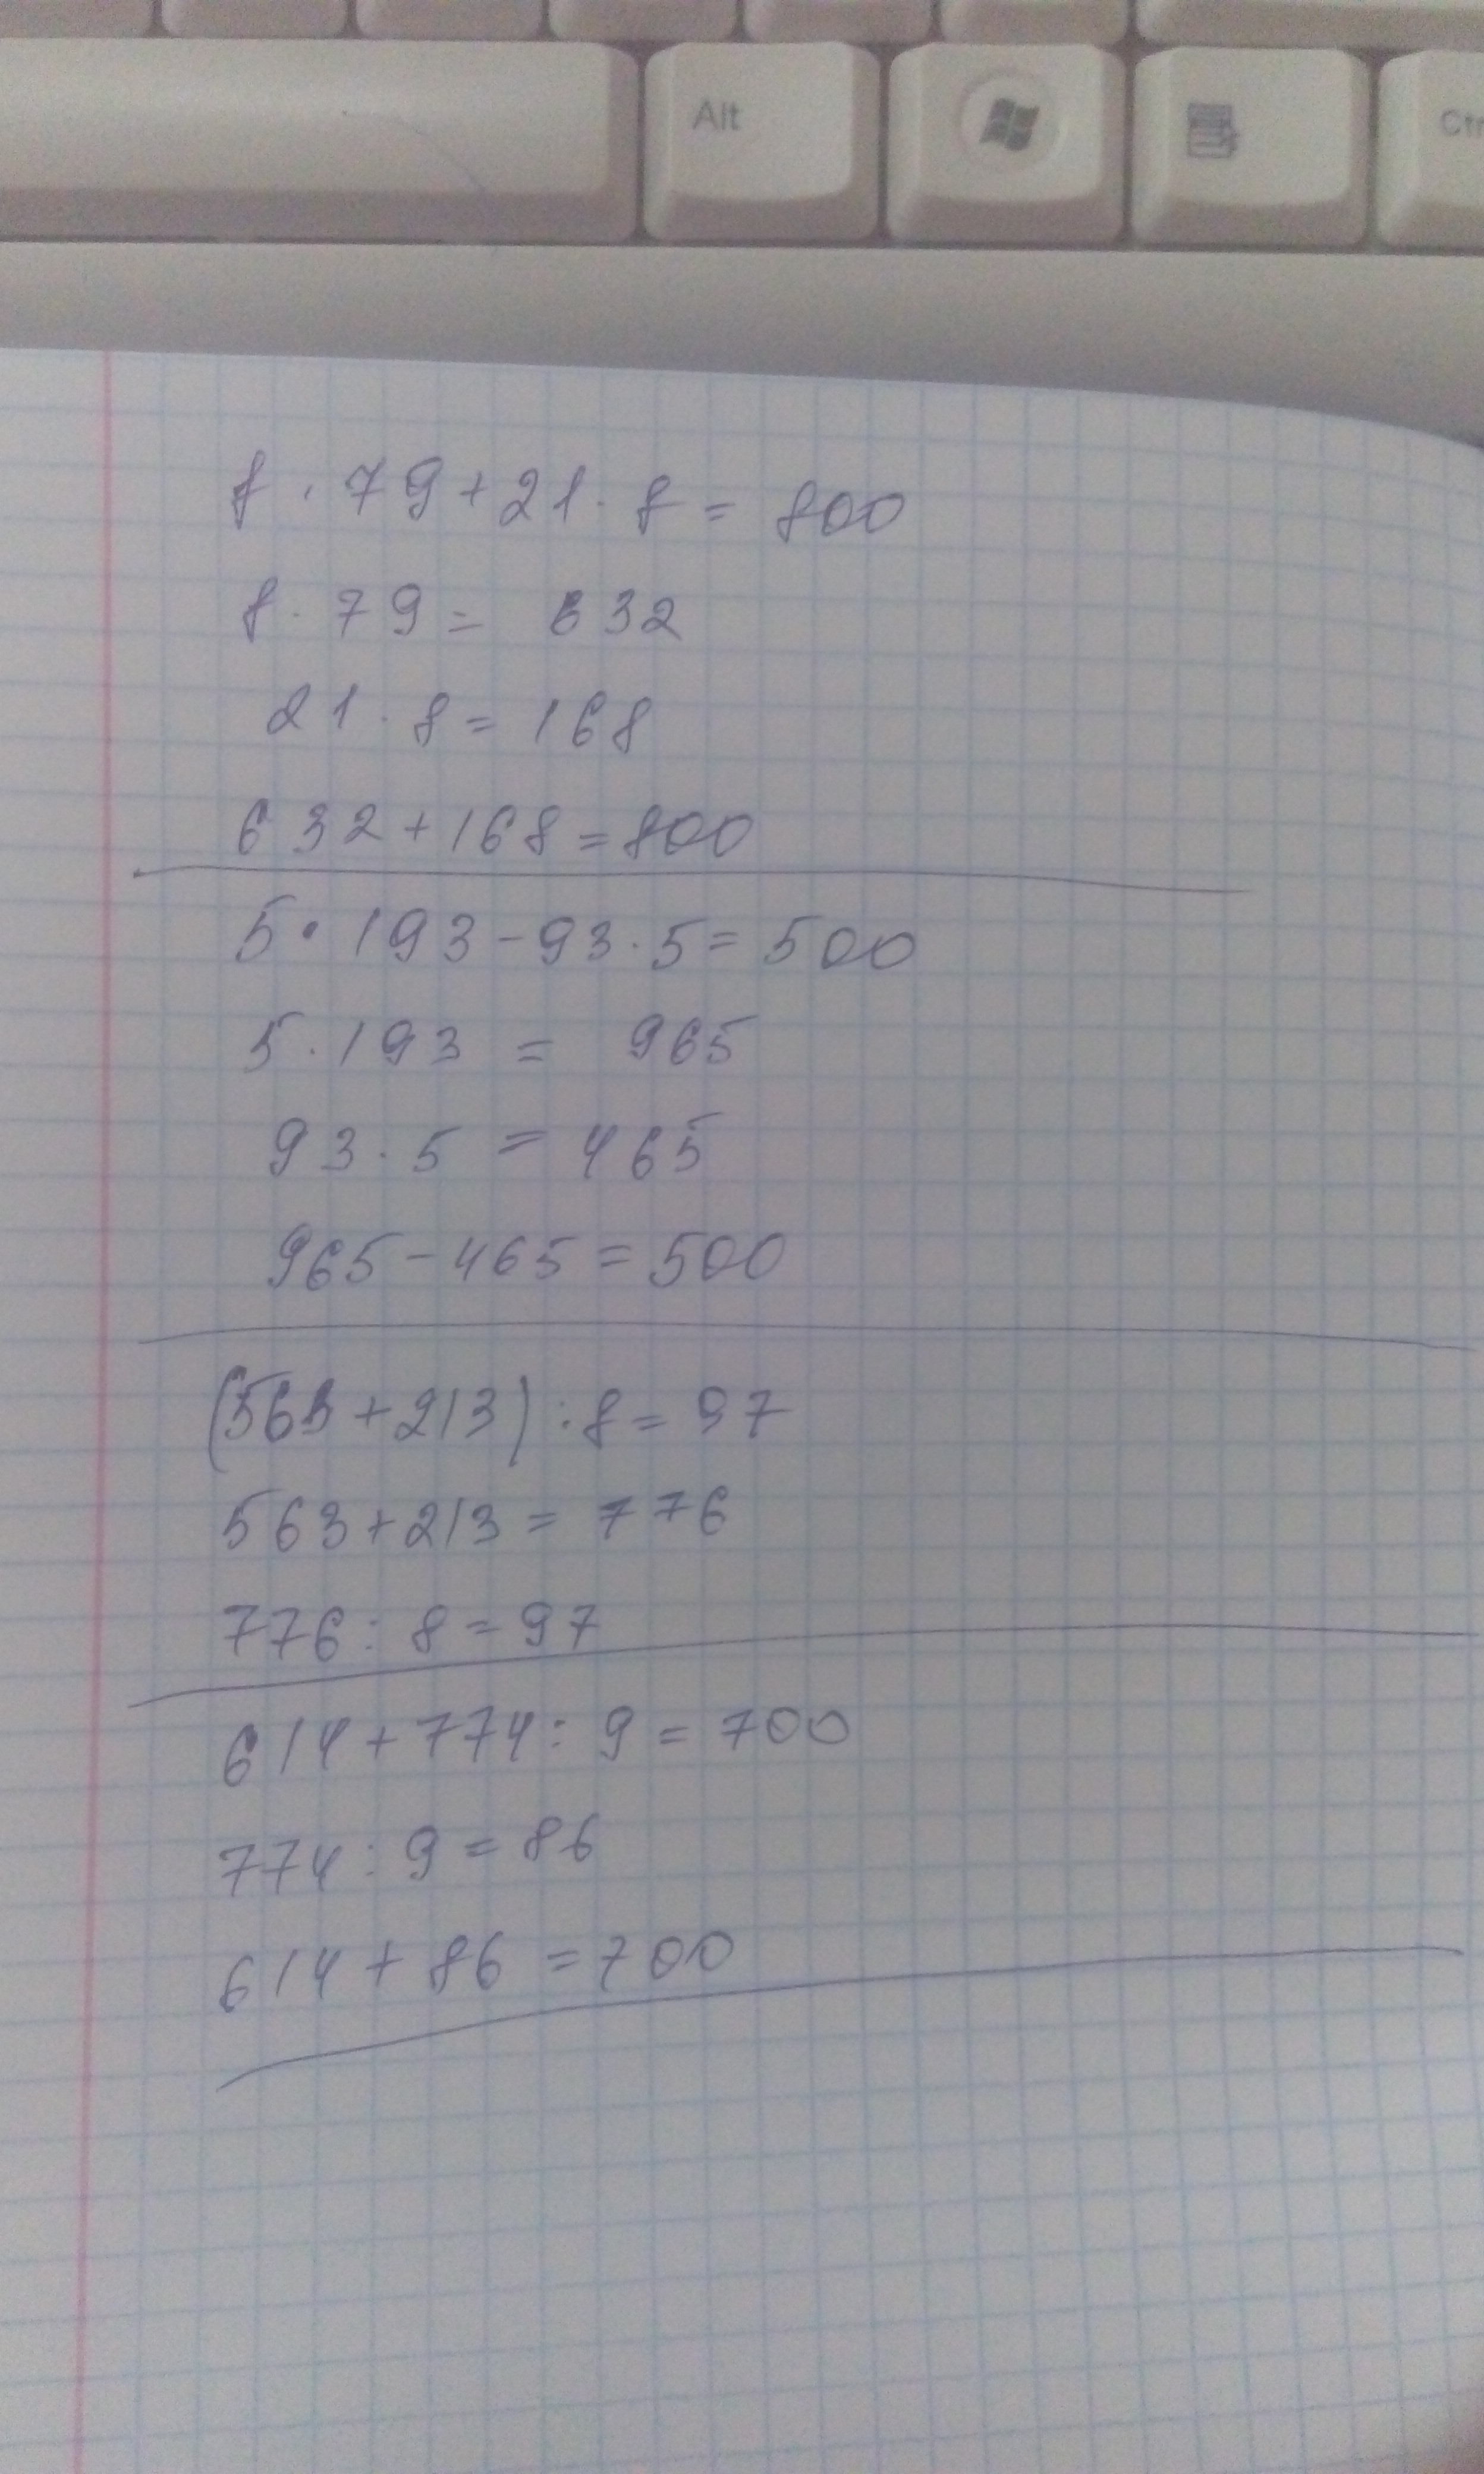 Alt
Ctr
8 · 79 + 21 · 8 = 800
8 · 79 = 632
21 · 8 = 168
632 + 168 = 800
5 · 193 - 93 · 5 = 500
5 · 193 = 965
93 · 5 = 465
965 - 465 = 500
(563 + 213) : 8 = 97
563 + 213 = 776
776 : 8 = 97
614 + 774 : 9 = 700
774 : 9 = 86
614 + 86 = 700